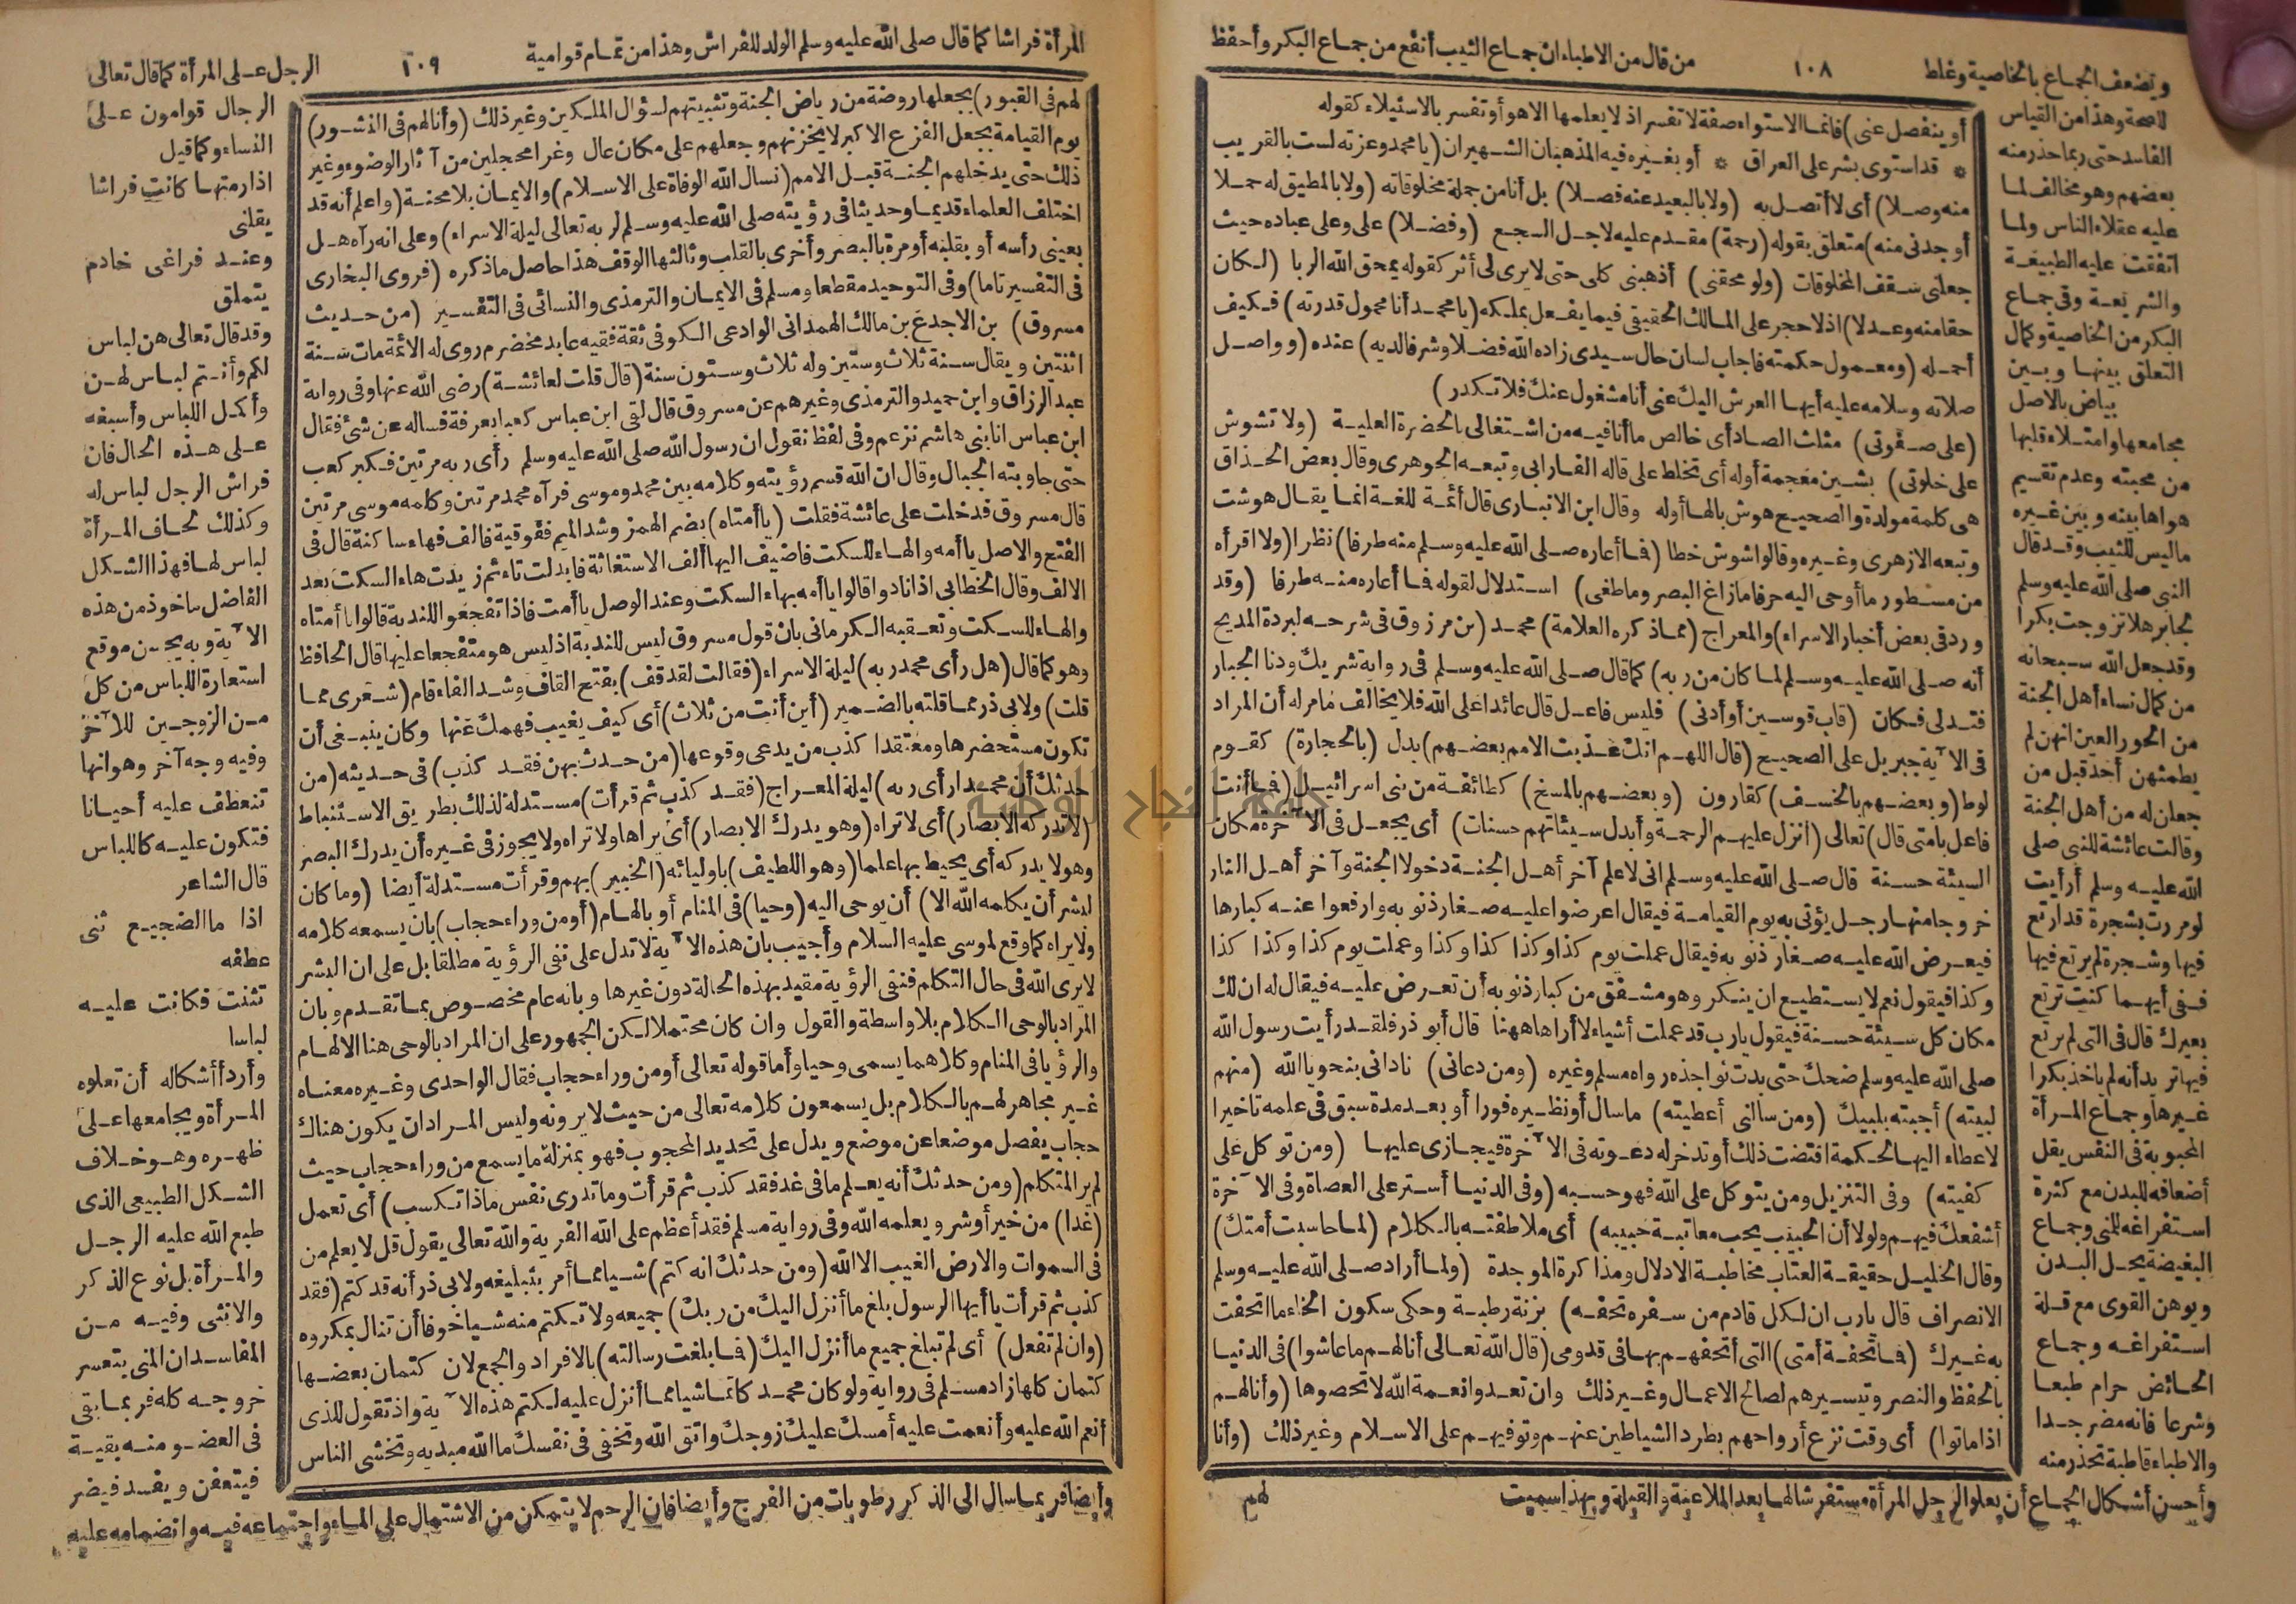 ويضعف الجماع بالخاصية وغلط
١٠٨
من قال من الاطباء ان جماع الثيب أنفع من جماع البكر وأحفظ
للصحة وهذا من القياس
الفاسد حتى ربما حذر منه
بعضهم وهو مخالف لما
عليه عقلاء الناس ولما
اتفقت عليه الطبيعة
والشريعة وفى جماع
البكر من الخاصية وكمال
التعلق بينها وبين
بياض بالاصل
مجامعها وامتلاء قلبها
من محبته وعدم تقسيم
هواها بينه وبين غيره
ماليس للثيب وقد قال
النبى صلى الله عليه وسلم
لجابر هلا تزوجت بكرا
وقد جعل الله سبحانه
من كمال نساء أهل الجنة
من الحور العين انهن لم
يطمثهن أحد قبل من
جعلن له من أهل الجنة
وقالت عائشة للنبى صلى
الله عليه وسلم أرأيت
لو مررت بشجرة قد ارتع
فيها وشجرة لم يرتع فيها
ففى أيهما كنت ترتع
بعيرك قال فى التى لم يرتع
فيها تريد أنه لم يأخذ بكرا
غيرها وجماع المرأة
المحبوبة فى النفس يقل
أضعافه للبدن مع كثرة
استفراغه للمنى وجماع
البغيضة يحل البدن
ويوهن القوى مع قلة
استفراغه وجماع
الحائض حرام طبعا
وشرعا فانه مضر جدا
والاطباء قاطبة تحذر منه
أو ينفصل عنى) فانما الاستواء صفة لا تفسر اذ لا يعلمها الا هو أو تفسر بالاستيلاء كقوله
* قد استوى بشر على العراق * أو بغيره فيه المذهبان الشهيران (يا محمد وعزته لست بالقريب
منه وصلا) أى لا أتصل به (ولا بالبعيد عنه فصلا) بل أنا من جملة مخلوقاته (ولا بالمطيق له حملا
أوجدنى منه) متعلق بقوله (رحمة) مقدم عليه لاجل السجع (وفضلا) على وعلى عباده حيث
جعلنى سقف المخلوقات (ولو محقنى) أذهبنى كلى حتى لا يرى لى أثر كقوله يمحق الله الربا (لكان
حقا منه وعدلا) اذ لا حجر على المالك الحقيقى فيما يفعل بملكه (يا محمد أنا محمول قدرته) فكيف
أحمله (ومعمول حكمته فاجاب لسان حال سيدى زاده الله فضلا وشرفا لديه) عنده (وواصل
صلاته وسلامه عليه أيها العرش اليك عنى أنا مشغول عنك فلا تكدر)
(على صفوتى) مثلث الصاد أى خالص ما أنا فيه من اشتغالى بالحضرة العلية (ولا تشوش
على خلوتى) بشين معجمة أوله أى تخلط على قاله الفارابى وتبعه الجوهرى وقال بعض الحذاق
هى كلمة مولدة والصحيح هوش بالها أوله وقال ابن الانبارى قال أئمة اللغة انما يقال هوشت
وتبعه الازهرى وغيره وقالوا شوش خطا (فما أعاره صلى الله عليه وسلم منه طرفا) نظرا (ولا اقرأه
من مسطور ما أوحى اليه حرفا ما زاغ البصر وما طغى) استدلال لقوله فما أعاره منه طرفا (وقد
ورد فى بعض أخبار الاسراء) والمعراج (مما ذكره العلامة) محمد (بن مرزوق فى شرحه لبردة المديح
أنه صلى الله عليه وسلم لما كان من ربه) كما قال صلى الله عليه وسلم فى رواية شريك ودنا الجبار
فتدلى فكان (قاب قوسين أو أدنى) فليس فاعل قال عائدا على الله فلا يخالف ما مر له أن المراد
فى الآية جبريل على الصحيح (قال اللهم انك عذبت الامم بعضهم) بدل (بالحجارة) كقوم
لوط (وبعضهم بالخسف) كقارون (وبعضهم بالمسخ) كطائفة من بنى اسرائيل (فما أنت
فاعل بامتى قال) تعالى (أنزل عليهم الرحمة وأبدل سيئاتهم حسنات) أى يجعل فى الآخرة مكان
السيئة حسنة قال صلى الله عليه وسلم انى لا علم آخر أهل الجنة دخولا الجنة وآخر أهل النار
خروجا منها رجل يؤتى به يوم القيامة فيقال اعرضوا عليه صغار ذنوبه وارفعوا عنه كبارها
فيعرض الله عليه صغار ذنوبه فيقال عملت يوم كذا وكذا كذا وكذا وعملت يوم كذا وكذا كذا
وكذا فيقول نعم لا يستطيع ان ينكر وهو مشفق من كبار ذنوبه أن تعرض عليه فيقال له ان لك
مكان كل سيئة حسنة فيقول يا رب قد عملت أشياء لا أراها ههنا قال أبو ذر فلقد رأيت رسول الله
صلى الله عليه وسلم ضحك حتى بدت نواجذه رواه مسلم وغيره (ومن دعانى) نادانى بنحو يا الله (منهم
لبيته) أجبته بلبيك (ومن سالنى أعطيته) ما سال أو نظيره فورا أو بعد مدة سبق فى علمه تاخيرا
لاعطاء اليها الحكمة اقتضت ذلك أو تدخر له دعوته فى الآخرة فيجازى عليها (ومن توكل على
كفيته) وفى التنزيل ومن يتوكل على الله فهو حسبه (وفى الدنيا أستر على العصاة وفى الآخرة
أشفعك فيهم ولولا أن الحبيب يحب معاتبة حبيبه) أى ملاطفته بالكلام (لما حاسبت أمتك)
وقال الخليل حقيقة العتاب مخاطبة الادلال ومذاكرة الموجدة (ولما أراد صلى الله عليه وسلم
الانصراف قال يا رب ان لكل قادم من سفره تحفه) بزنة رطبة وحكى سكون الحاء ما اتحفت
به غيرك (فما تحفة أمتى) التى أتحفهم بها فى قدومى (قال الله تعالى أنا لهم ما عاشوا) فى الدنيا
بالحفظ والنصر وتيسيرهم لصالح الاعمال وغير ذلك وان تعدوا نعمة الله لا تحصوها (وأنا لهم
اذا ماتوا) أى وقت نزع أرواحهم بطرد الشياطين عنهم وتوفيهم على الاسلام وغير ذلك (وأنا
وأحسن أشكال الجماع أن يعلو الرجل المرأة مستفرشا لها بعد الملاعبة والقبلة وبهذا سميت
لهم
المرأة فراشا كما قال صلى الله عليه وسلم الولد للفراش وهذا من تمام قوامية
١٠٩
الرجل على المرأة كما قال تعالى
لهم فى القبور) بجعلها روضة من رياض الجنة وتثبيتهم لسؤال الملكين وغير ذلك (وأنا لهم فى النشور)
يوم القيامة بجعل الفزع الاكبر لا يحزنهم وجعلهم على مكان عال وغرا محجلين من آثار الوضوء وغير
ذلك حتى يدخلهم الجنة قبل الامم (نسال الله الوفاة على الاسلام) والايمان بلا محنة (واعلم أنه قد
اختلف العلماء قديما وحديثا فى رؤيته صلى الله عليه وسلم لربه تعالى ليلة الاسراء) وعلى انه رآه هل
بعينى رأسه أو بقلبه أو مرة بالبصر وأخرى بالقلب وثالثها الوقف هذا حاصل ما ذكره (فروى البخارى
فى التفسير تاما) وفى التوحيد مقطعا ومسلم فى الايمان والترمذى والنسائى فى التفسير (من حديث
مسروق) بن الاجدع بن مالك الهمدانى الوادعى الكوفى ثقة فقيه عابد مخضرم روى له الائمة مات سنة
اثنتين ويقال سنة ثلاث وستين وله ثلاث وستون سنة (قال قلت لعائشة) رضى الله عنها وفى رواية
عبد الرزاق وابن حميد والترمذى وغيرهم عن مسروق قال لقى ابن عباس كعبا بعرفة فساله عن شئ فقال
ابن عباس انا بنى هاشم نزعم وفى لفظ نقول ان رسول الله صلى الله عليه وسلم رأى ربه مرتين فكبر كعب
حتى جاوبته الجبال وقال ان الله قسم رؤيته وكلامه بين محمد وموسى فرآه محمد مرتين وكلمه موسى مرتين
قال مسروق فدخلت على عائشة فقلت (يا أمتاه) بضم الهمز وشد الميم ففوقية فالف فهاء ساكنة قال فى
الفتح والاصل يا أمه والهاء للسكت فاضيف اليها ألف الاستغاثة فابدلت تاء ثم زيدت هاء السكت بعد
الالف وقال الخطابى اذا نادوا قالوا يا أمه بهاء السكت وعند الوصل يا أمت فاذا تفجعو اللندبة قالوا يا أمتاه
والهاء للسكت وتعقبه الكرمانى بان قول مسروق ليس للندبة اذ ليس هو متفجعا عليها قال الحافظ
وهو كما قال (هل رأى محمد ربه) ليلة الاسراء (فقالت لقد قف) بفتح القاف وشد الفاء قام (شعرى مما
قلت) ولابى ذر مما قلته بالضمير (أين أنت من ثلاث) أى كيف يغيب فهمك عنها وكان ينبغى أن
تكون مستحضرها ومعتقدا كذب من يدعى وقوعها (من حدث بهن فقد كذب) فى حديثه (من
حدثك أن محمدا رأى ربه) ليلة المعراج (فقد كذب ثم قرأت) مستدلة لذلك بطريق الاستنباط
(لا تدركه الابصار) أى لا تراه (وهو يدرك الابصار) أى يراها ولا تراه ولا يجوز فى غيره أن يدرك البصر
وهو لا يدركه أى يحيط بها علما (وهو اللطيف) باوليائه (الخبير) بهم وقرأت مستدلة أيضا (وما كان
لبشر أن يكلمه الله الا) أن يوحى اليه (وحيا) فى المنام أو بالهام (أو من وراء حجاب) بان يسمعه كلامه
ولا يراه كما وقع لموسى عليه السلام وأجيب بان هذه الآية لا تدل على نفى الرؤية مطلقا بل على ان البشر
لا يرى الله فى حال التكلم فنفى الرؤية مقيد بهذه الحالة دون غيرها وبانه عام مخصوص بما تقدم وبان
المراد بالوحى الكلام بلا واسطة والقول وان كان محتملا لكن الجمهور على ان المراد بالوحى هنا الالهام
والرؤيا فى المنام وكلاهما يسمى وحيا وأما قوله تعالى أو من وراء حجاب فقال الواحدى وغيره معناه
غير مجاهر لهم بالكلام بل يسمعون كلامه تعالى من حيث لا يرونه وليس المراد ان يكون هناك
حجاب يفصل موضعا عن موضع ويدل على تحديد المحجوب فهو بمنزلة ما يسمع من وراء حجاب حيث
لم ير المتكلم (ومن حدثك أنه يعلم ما فى غد فقد كذب ثم قرأت وما تدرى نفس ماذا تكسب) أى تعمل
(غدا) من خير أو شر ويعلمه الله وفى رواية مسلم فقد أعظم على الله الفرية والله تعالى يقول قل لا يعلم من
فى السموات والارض الغيب الا الله (ومن حدثك انه كتم) شيا مما أمر بتبليغه ولابى ذر أنه قد كتم (فقد
كذب ثم قرأت يا أيها الرسول بلغ ما أنزل اليك من ربك) جميعه ولا تكتم منه شيا خوفا أن تنال بمكروه
(وان لم تفعل) أى لم تبلغ جميع ما أنزل اليك (فما بلغت رسالته) بالافراد والجمع لان كتمان بعضها
كتمان كلها زاد مسلم فى رواية ولو كان محمد كاتما شيا مما أنزل عليه لكتم هذه الآية واذ تقول للذى
أنعم الله عليه وأنعمت عليه أمسك عليك زوجك واتق الله وتخفى فى نفسك ما الله مبديه وتخشى الناس
الرجال قوامون على
النساء وكما قيل
اذا رمتها كانت فراشا
يقلنى
وعند فراغى خادم
يتملق
وقد قال تعالى هن لباس
لكم وأنتم لباس لهن
وأكمل اللباس وأسبغه
على هذه الحال فان
فراش الرجل لباس له
وكذلك لحاف المرأة
لباس لها فهذا الشكل
الفاضل ماخوذ من هذه
الآية وبه يحسن موقع
استعارة اللباس من كل
من الزوجين للآخر
وفيه وجه آخر وهو انها
تنعطف عليه أحيانا
فتكون عليه كاللباس
قال الشاعر
اذا ما الضجيع ثنى
عطفه
تثنت فكانت عليه
لباسا
وأردأ أشكاله أن تعلوه
المرأة ويجامعها على
ظهره وهو خلاف
الشكل الطبيعى الذى
طبع الله عليه الرجل
والمرأة بل نوع الذكر
والانثى وفيه من
المفاسد ان المنى يتعسر
خروجه كله فربما بقى
فى العضو منه بقية
فيتعفن ويفسد فيضر
وأيضا فربما سال الى الذكر رطوبات من الفرج وأيضا فان الرحم لا يتمكن من الاشتمال على الماء واجتماعه فيه وانضمامه عليه
جامعة النجاح الوطنية